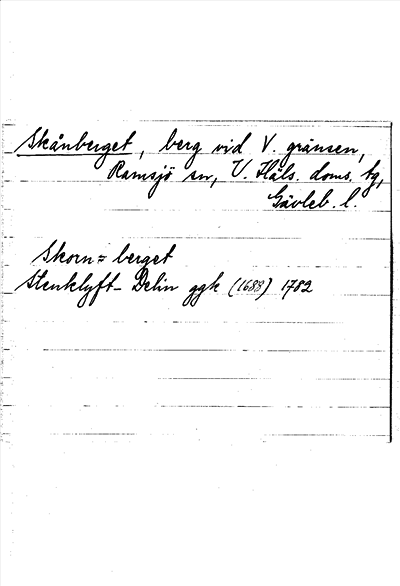 Skånberget, berg vid V. gränsen,
Ramsjö sn, V. Häls. doms. tg,
Gävleb. l.
Skorn= berget
Stenklyft- Delin ggk (1688) 1782